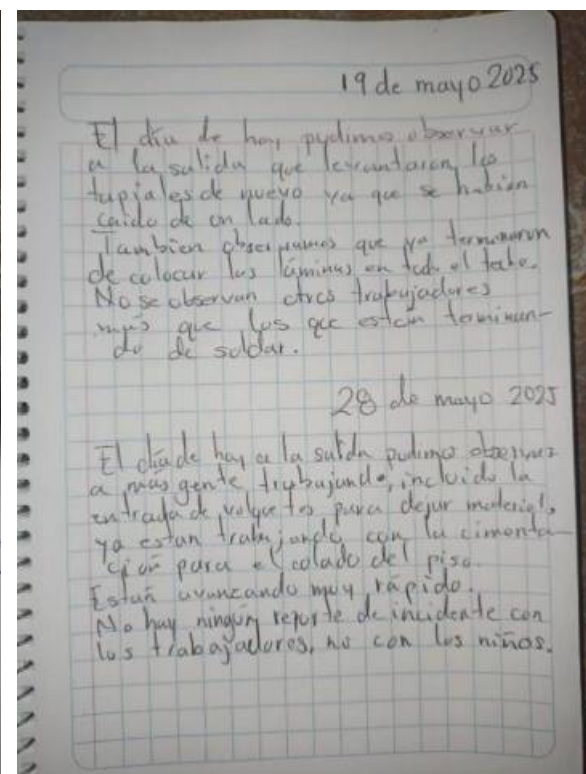 19 de mayo 2025
El día de hoy pudimos observar
a la salida que levantaron los
tapiales de nuevo ya que se habían
caido de un lado.
Tambien observamos que ya terminaron
de colocar las láminas en todo el techo.
No se observan otros trabajadores
más que los que están terminan-
do de soldar.
28 de mayo 2025
El día de hoy a la salida pudimos observar
a mas gente trabajando, incluido la
entrada de volquetes para dejar material,
ya estan trabajando con la cimenta-
ción para el colado del piso.
Estan avanzando muy rápido.
No hay ningún reporte de incidente con
los trabajadores, no con los niños.